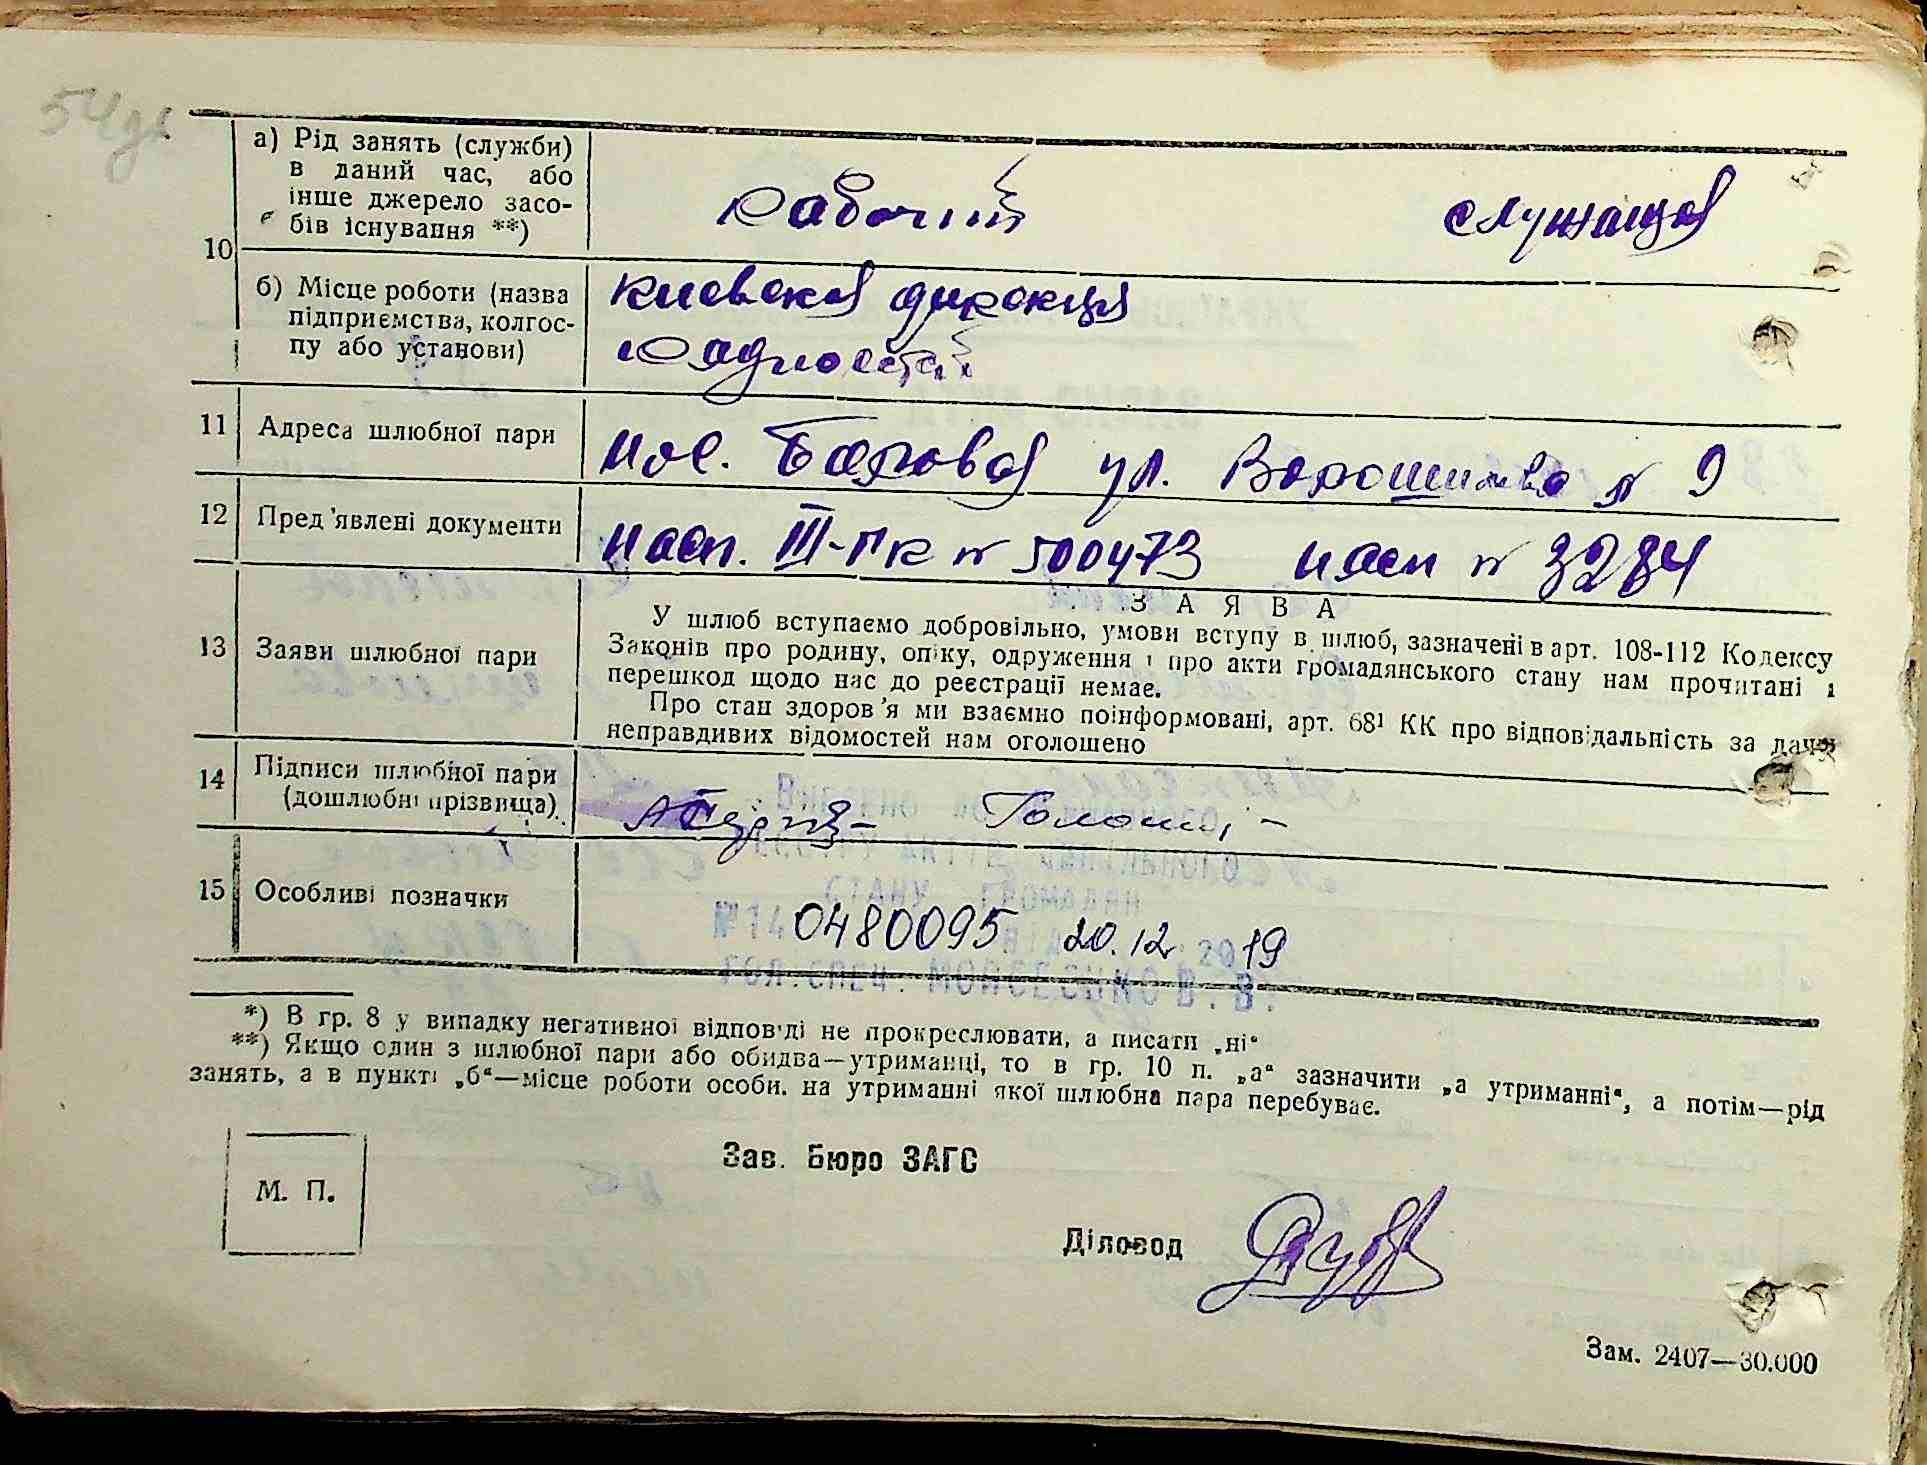 54
10
а) Рід занять (служби)
в даний час, або
інше джерело засо-
бів існування **)
Рабочий служащая
б) Місце роботи (назва
підприємства, колгос-
пу або установи)
Киевская дирекция
11 Адреса шлюбної пари
пос. Боровая ул. Ворошилова № 9
12 Пред'явлені документи
пасп. III-ГК № 500473 пасп № 3284
13 Заяви шлюбної пари
ЗАЯВА
У шлюб вступаємо добровільно, умови вступу в шлюб, зазначені в арт. 108-112 Кодексу
Законів про родину, опіку, одруження і про акти громадянського стану нам прочитані і
перешкод щодо нас до реєстрації немає.
Про стан здоров'я ми взаємно поінформовані, арт. 68¹ КК про відповідальність за дачу
неправдивих відомостей нам оголошено
14 Підписи шлюбної пари
(дошлюбні прізвища)
15 Особливі позначки
СТАНУ ГРОМАДЯН
0480095 20.12.2019
ГОЛ.СПЕЦ. МОЙСЕЄНКО В.В.
*) В гр. 8 у випадку негативної відповіді не прокреслювати, а писати „ні“
**) Якщо один з шлюбної пари або обидва—утриманці, то в гр. 10 п. „а“ зазначити „а утриманні“, а потім—рід
занять, а в пункті „б“—місце роботи особи, на утриманні якої шлюбна пара перебуває.
Зав. Бюро ЗАГС
М. П.
Діловод
Зам. 2407—30.000